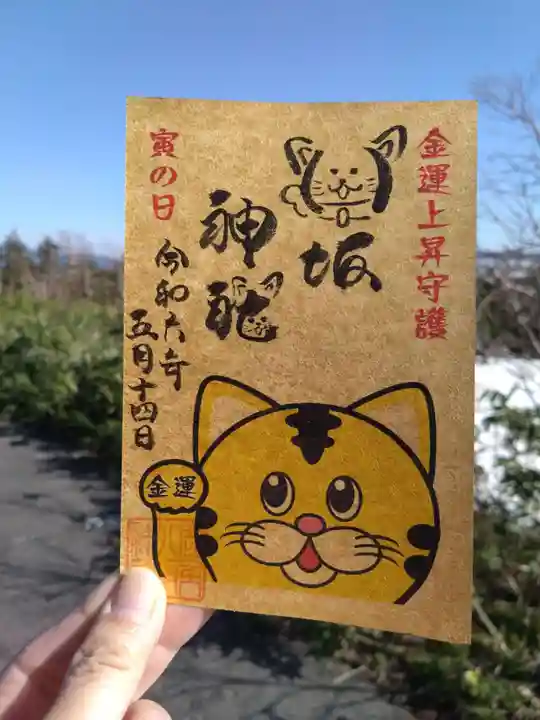 金運上昇守護
八坂
神社
寅の日
令和六年
五月十四日
金運